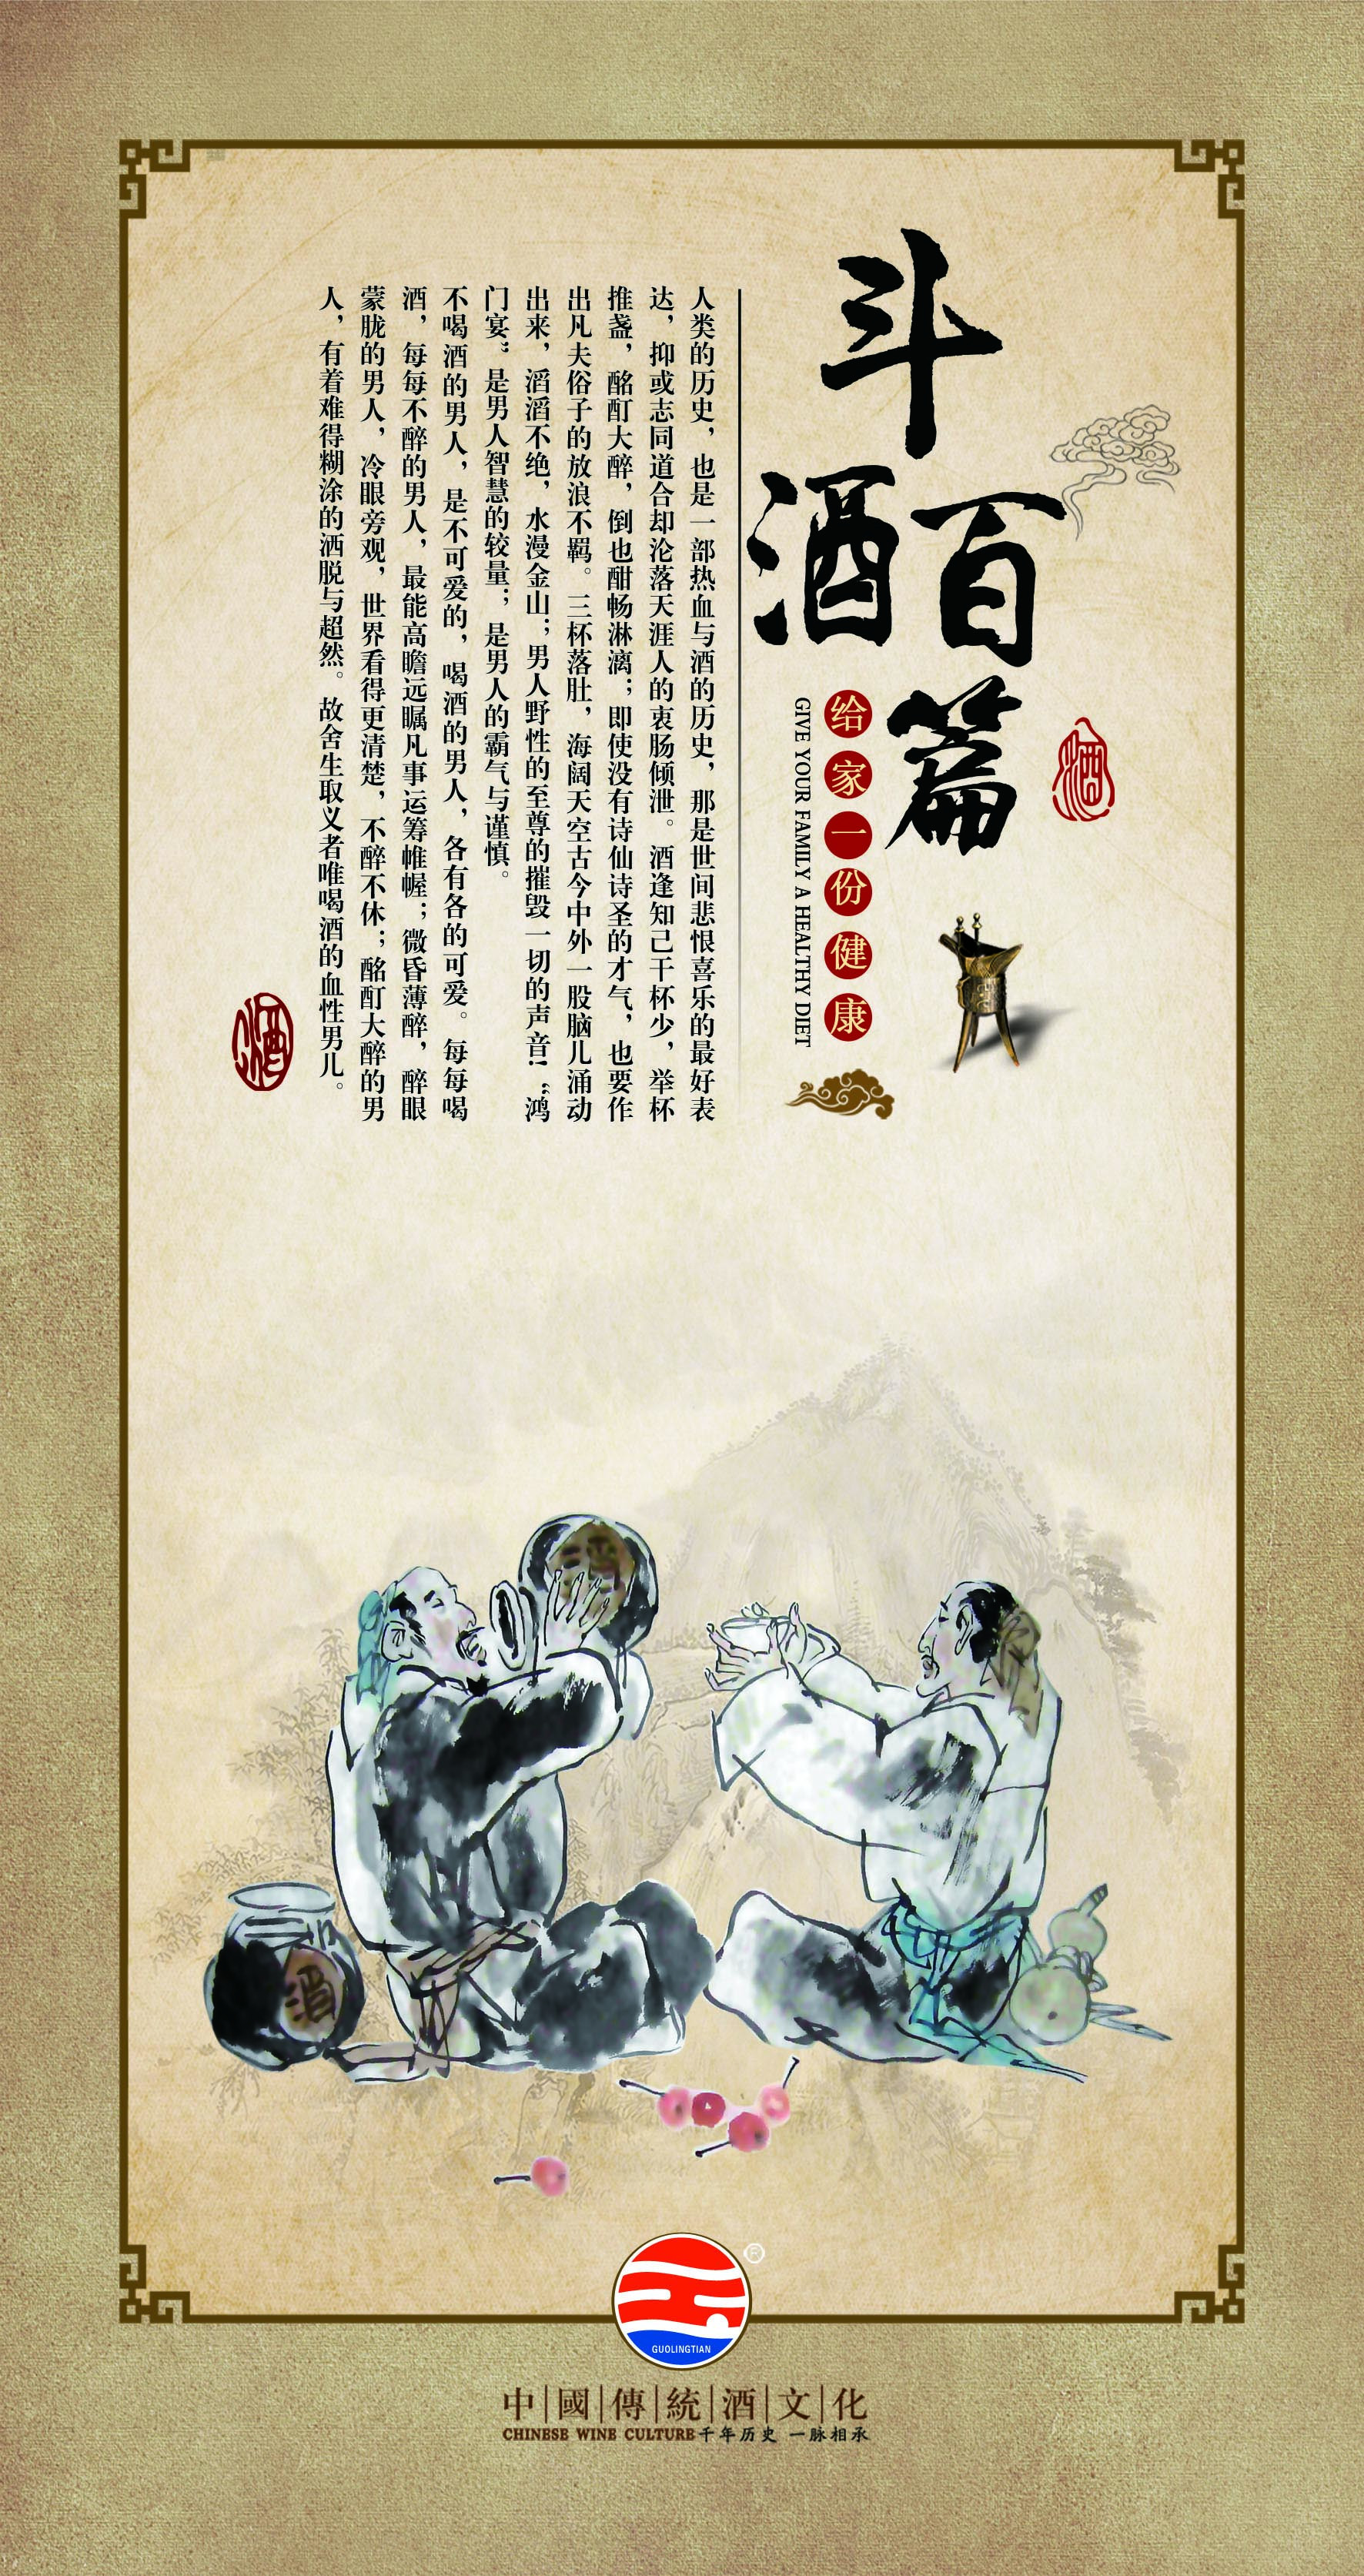 斗酒百篇
酒
给家一份健康
GIVE YOUR FAMILY A HEALTHY DIET
人类的历史，也是一部热血与酒的历史，那是世间悲恨喜乐的最好表
达，抑或志同道合却沦落天涯人的衷肠倾泄。酒逢知己干杯少，举杯
推盏，酩酊大醉，倒也酣畅淋漓；即使没有诗仙诗圣的才气，也要作
出凡夫俗子的放浪不羁。三杯落肚，海阔天空古今中外一股脑儿涌动
出来，滔滔不绝，水漫金山；男人野性的至尊的摧毁一切的声音！“鸿
门宴”是男人智慧的较量；是男人的霸气与谨慎。
不喝酒的男人，是不可爱的，喝酒的男人，各有各的可爱。每每喝
酒，每每不醉的男人，最能高瞻远瞩凡事运筹帷幄；微昏薄醉，醉眼
蒙胧的男人，冷眼旁观，世界看得更清楚，不醉不休；酩酊大醉的男
人，有着难得糊涂的洒脱与超然。故舍生取义者唯喝酒的血性男儿。
酒
酒
酒
GUOLINGTIAN
中國傳統酒文化
CHINESE WINE CULTURE千年历史 一脉相承